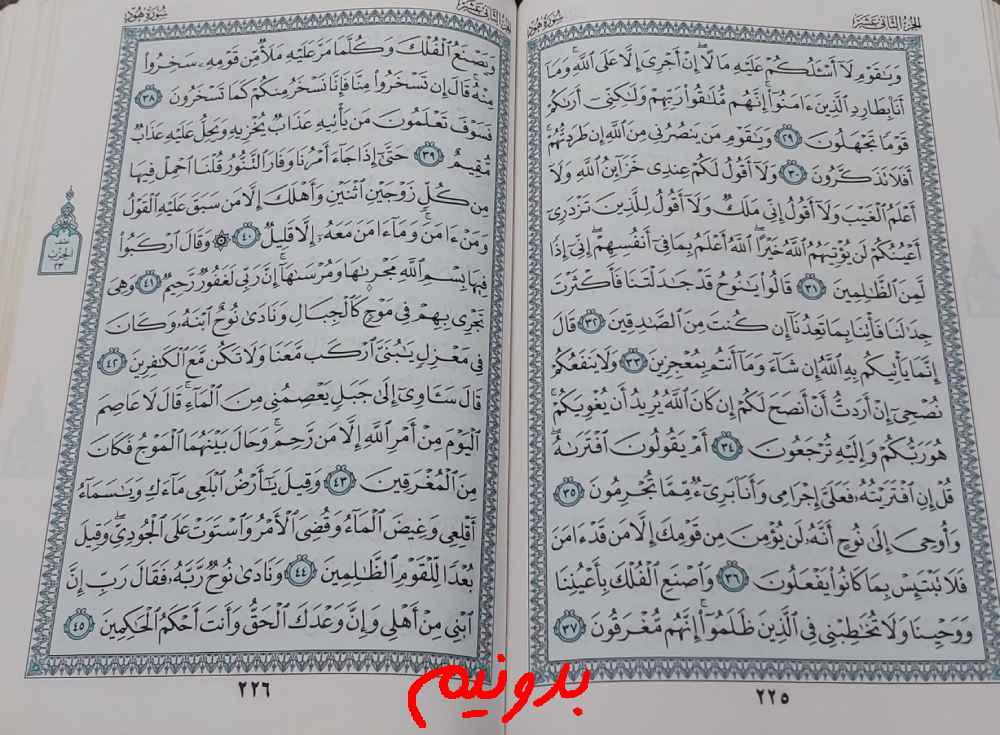 الجزء الثاني عشر
سورة هود
وَيَٰقَوْمِ لَآ أَسْـَٔلُكُمْ عَلَيْهِ مَالًا ۖ إِنْ أَجْرِىَ إِلَّا عَلَى ٱللَّهِ ۚ وَمَآ
أَنَا۠ بِطَارِدِ ٱلَّذِينَ ءَامَنُوٓا۟ ۚ إِنَّهُم مُّلَٰقُوا۟ رَبِّهِمْ وَلَٰكِنِّىٓ أَرَىٰكُمْ
قَوْمًا تَجْهَلُونَ ٢٩ وَيَٰقَوْمِ مَن يَنصُرُنِى مِنَ ٱللَّهِ إِن طَرَدتُّهُمْ ۚ
أَفَلَا تَذَكَّرُونَ ٣٠ وَلَآ أَقُولُ لَكُمْ عِندِى خَزَآئِنُ ٱللَّهِ وَلَآ
أَعْلَمُ ٱلْغَيْبَ وَلَآ أَقُولُ إِنِّى مَلَكٌ وَلَآ أَقُولُ لِلَّذِينَ تَزْدَرِىٓ
أَعْيُنُكُمْ لَن يُؤْتِيَهُمُ ٱللَّهُ خَيْرًا ۖ ٱللَّهُ أَعْلَمُ بِمَا فِىٓ أَنفُسِهِمْ ۖ إِنِّىٓ إِذًا
لَّمِنَ ٱلظَّٰلِمِينَ ٣١ قَالُوا۟ يَٰنُوحُ قَدْ جَٰدَلْتَنَا فَأَكْثَرْتَ
جِدَٰلَنَا فَأْتِنَا بِمَا تَعِدُنَآ إِن كُنتَ مِنَ ٱلصَّٰدِقِينَ ٣٢ قَالَ
إِنَّمَا يَأْتِيكُم بِهِ ٱللَّهُ إِن شَآءَ وَمَآ أَنتُم بِمُعْجِزِينَ ٣٣ وَلَا يَنفَعُكُمْ
نُصْحِىٓ إِنْ أَرَدتُّ أَنْ أَنصَحَ لَكُمْ إِن كَانَ ٱللَّهُ يُرِيدُ أَن يُغْوِيَكُمْ ۚ
هُوَ رَبُّكُمْ وَإِلَيْهِ تُرْجَعُونَ ٣٤ أَمْ يَقُولُونَ ٱفْتَرَىٰهُ ۖ
قُلْ إِنِ ٱفْتَرَيْتُهُۥ فَعَلَىَّ إِجْرَامِى وَأَنَا۠ بَرِىٓءٌ مِّمَّا تُجْرِمُونَ ٣٥
وَأُوحِىَ إِلَىٰ نُوحٍ أَنَّهُۥ لَن يُؤْمِنَ مِن قَوْمِكَ إِلَّا مَن قَدْ ءَامَنَ
فَلَا تَبْتَئِسْ بِمَا كَانُوا۟ يَفْعَلُونَ ٣٦ وَٱصْنَعِ ٱلْفُلْكَ بِأَعْيُنِنَا
وَوَحْيِنَا وَلَا تُخَٰطِبْنِى فِى ٱلَّذِينَ ظَلَمُوٓا۟ ۚ إِنَّهُم مُّغْرَقُونَ ٣٧
٢٢٥
الثاني عشر
سورة هود
وَيَصْنَعُ ٱلْفُلْكَ وَكُلَّمَا مَرَّ عَلَيْهِ مَلَأٌ مِّن قَوْمِهِۦ سَخِرُوا۟
مِنْهُ ۚ قَالَ إِن تَسْخَرُوا۟ مِنَّا فَإِنَّا نَسْخَرُ مِنكُمْ كَمَا تَسْخَرُونَ ٣٨
فَسَوْفَ تَعْلَمُونَ مَن يَأْتِيهِ عَذَابٌ يُخْزِيهِ وَيَحِلُّ عَلَيْهِ عَذَابٌ
مُّقِيمٌ ٣٩ حَتَّىٰٓ إِذَا جَآءَ أَمْرُنَا وَفَارَ ٱلتَّنُّورُ قُلْنَا ٱحْمِلْ فِيهَا
مِن كُلٍّ زَوْجَيْنِ ٱثْنَيْنِ وَأَهْلَكَ إِلَّا مَن سَبَقَ عَلَيْهِ ٱلْقَوْلُ
وَمَنْ ءَامَنَ ۚ وَمَآ ءَامَنَ مَعَهُۥٓ إِلَّا قَلِيلٌ ٤٠ ۞ وَقَالَ ٱرْكَبُوا۟
فِيهَا بِسْمِ ٱللَّهِ مَجْر۪ىٰهَا وَمُرْسَىٰهَآ ۚ إِنَّ رَبِّى لَغَفُورٌ رَّحِيمٌ ٤١ وَهِىَ
تَجْرِى بِهِمْ فِى مَوْجٍ كَٱلْجِبَالِ وَنَادَىٰ نُوحٌ ٱبْنَهُۥ وَكَانَ
فِى مَعْزِلٍ يَٰبُنَىَّ ٱرْكَب مَّعَنَا وَلَا تَكُن مَّعَ ٱلْكَٰفِرِينَ ٤٢
قَالَ سَـَٔاوِىٓ إِلَىٰ جَبَلٍ يَعْصِمُنِى مِنَ ٱلْمَآءِ ۚ قَالَ لَا عَاصِمَ
ٱلْيَوْمَ مِنْ أَمْرِ ٱللَّهِ إِلَّا مَن رَّحِمَ ۚ وَحَالَ بَيْنَهُمَا ٱلْمَوْجُ فَكَانَ
مِنَ ٱلْمُغْرَقِينَ ٤٣ وَقِيلَ يَٰٓأَرْضُ ٱبْلَعِى مَآءَكِ وَيَٰسَمَآءُ
أَقْلِعِى وَغِيضَ ٱلْمَآءُ وَقُضِىَ ٱلْأَمْرُ وَٱسْتَوَتْ عَلَى ٱلْجُودِىِّ ۖ وَقِيلَ
بُعْدًا لِّلْقَوْمِ ٱلظَّٰلِمِينَ ٤٤ وَنَادَىٰ نُوحٌ رَّبَّهُۥ فَقَالَ رَبِّ إِنَّ
ٱبْنِى مِنْ أَهْلِى وَإِنَّ وَعْدَكَ ٱلْحَقُّ وَأَنتَ أَحْكَمُ ٱلْحَٰكِمِينَ ٤٥
نصف
الحزب
٢٣
٢٢٦
بدونيم